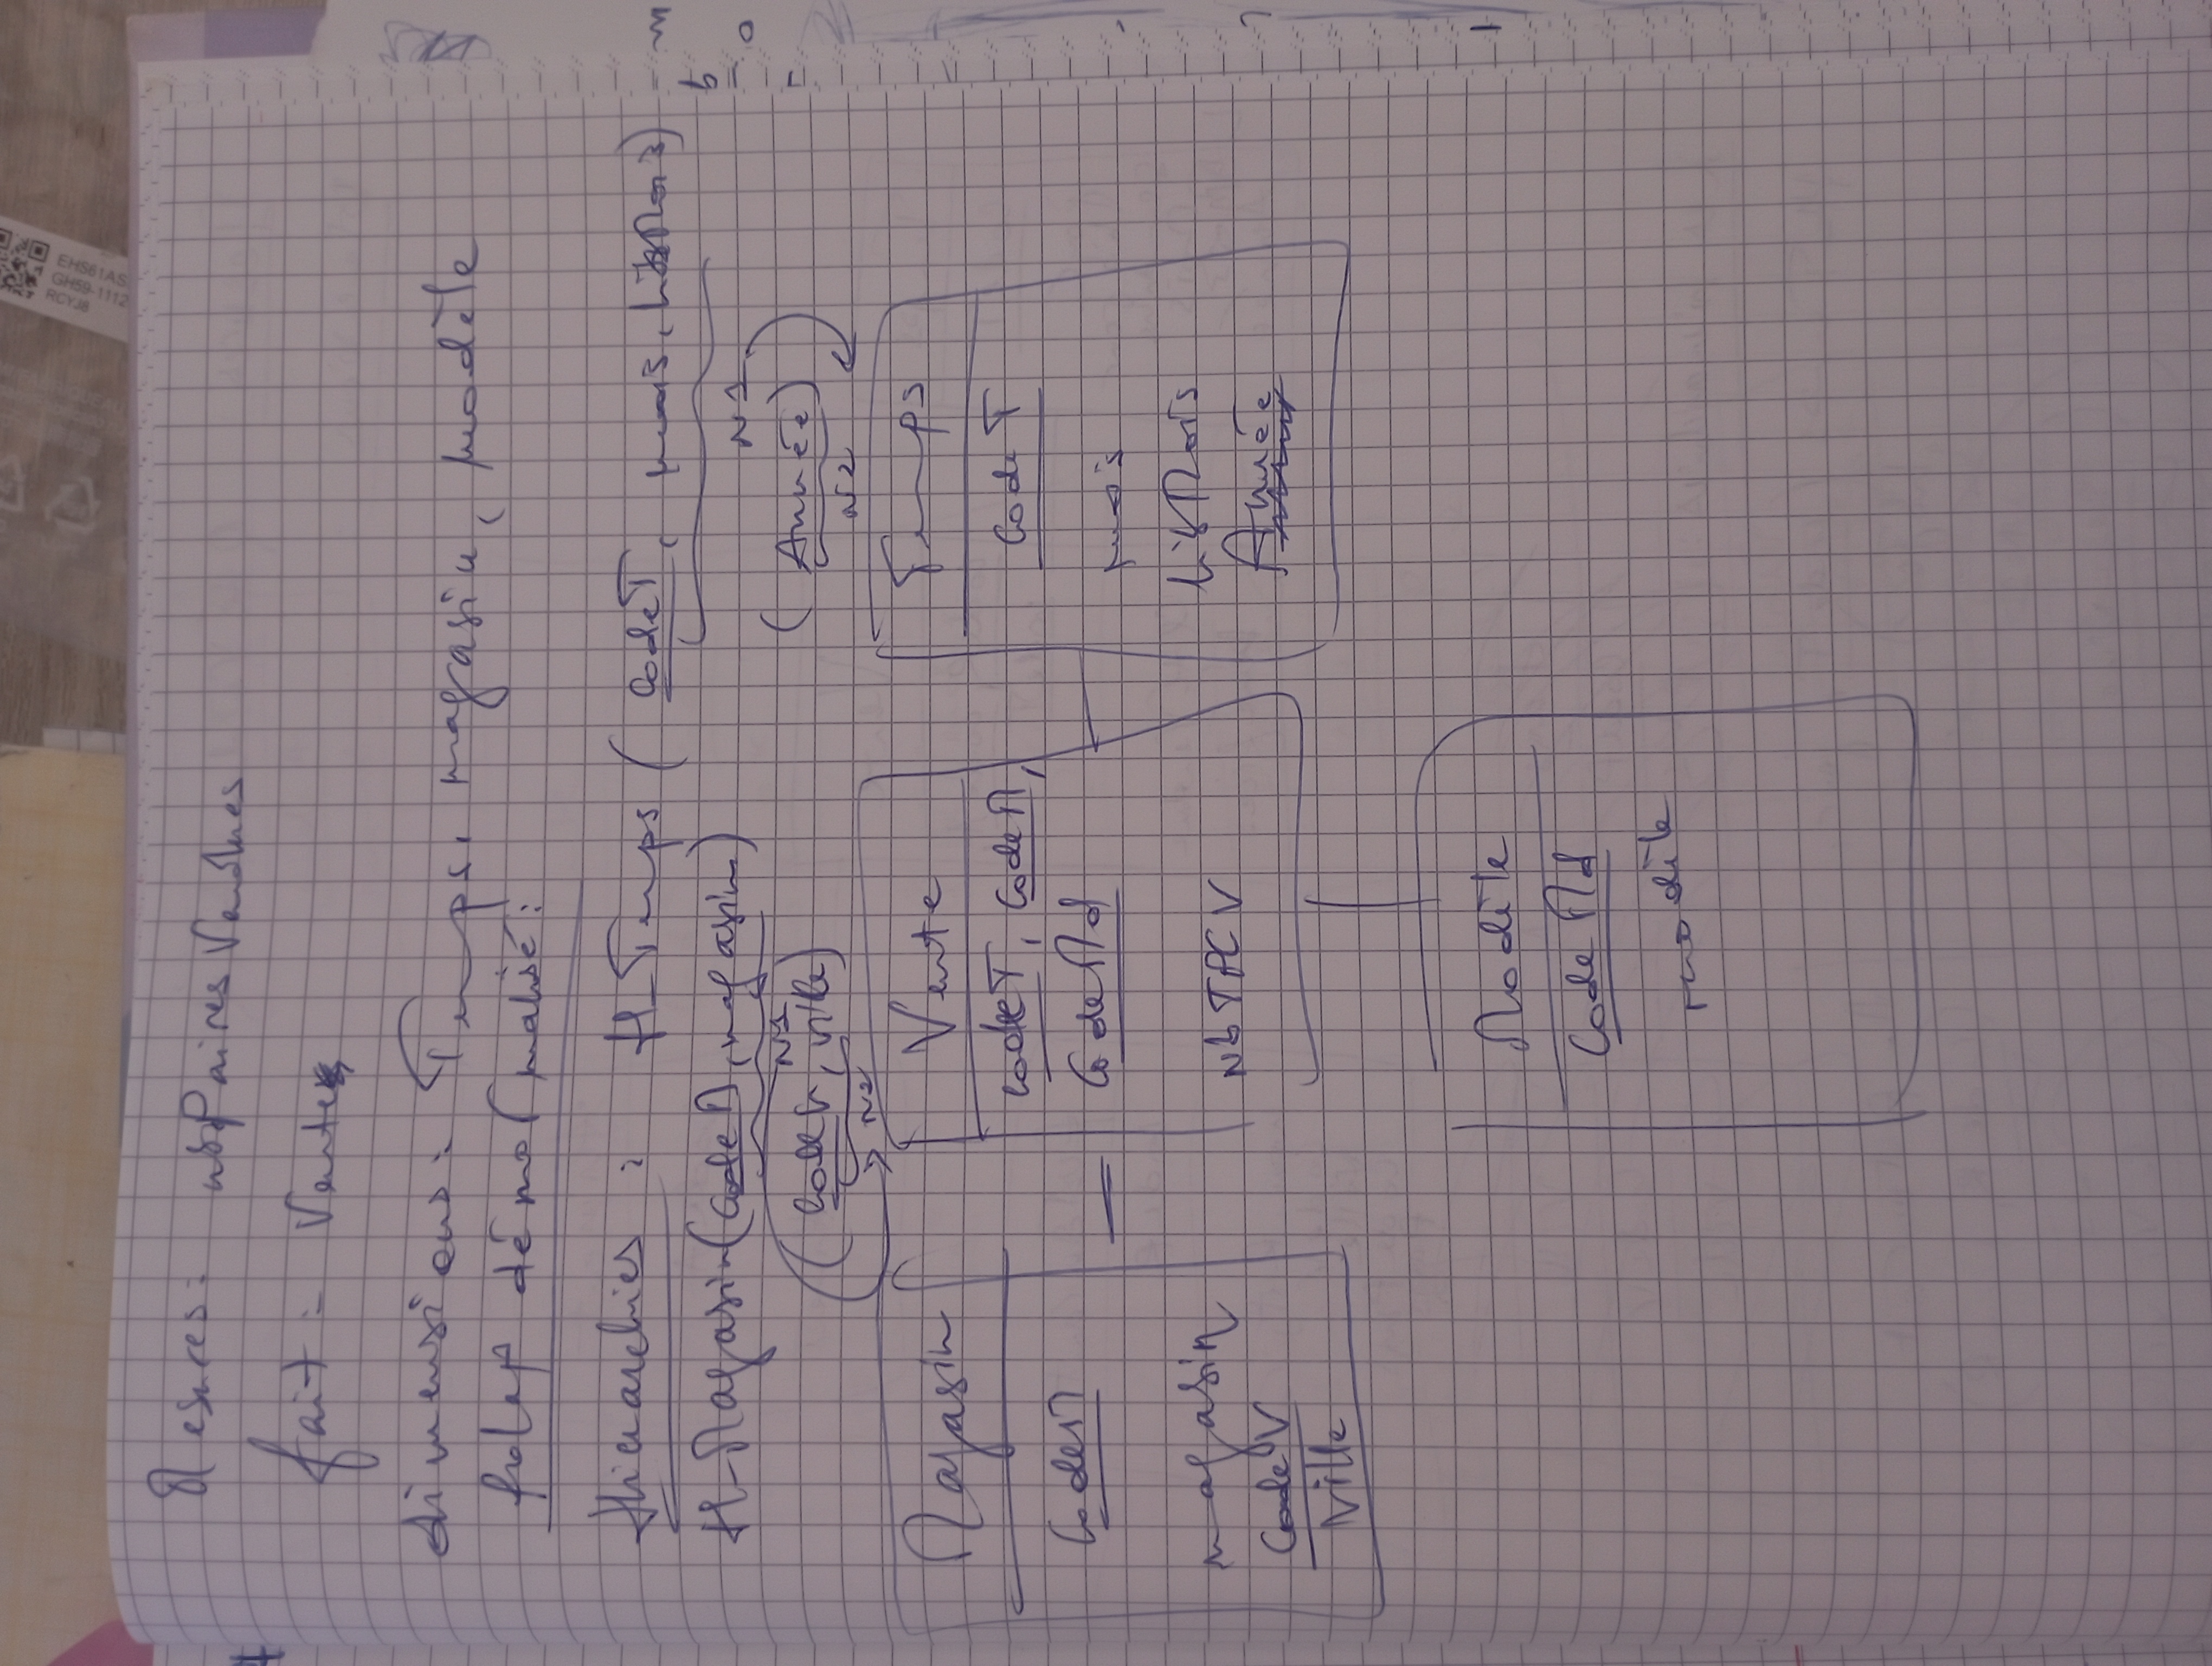 Mesures: nbPairesVendues
fait: Vente
dimensions: Temps, magasin, modèle
Rolap dénormalisé:
Hierarchies : H_Temps (CodeT, mois, LibMois)
N1
H_Magasin(CodeM, magasin)
N1
(CodeV, ville)
N2
(Année)
N2
Magasin
CodeM
magasin
CodeV
Ville
Vente
CodeT, CodeM,
CodeMd
Temps
CodeT
mois
LibMois
Année
Modèle
CodeMd
modèle
EHS61AS
GH59-1112